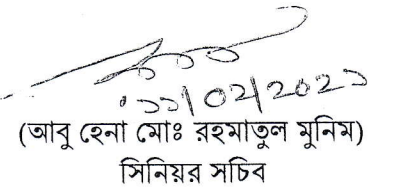 ১১/০২/২০২১
(আবু হেনা মোঃ রহমাতুল মুনিম)
সিনিয়র সচিব